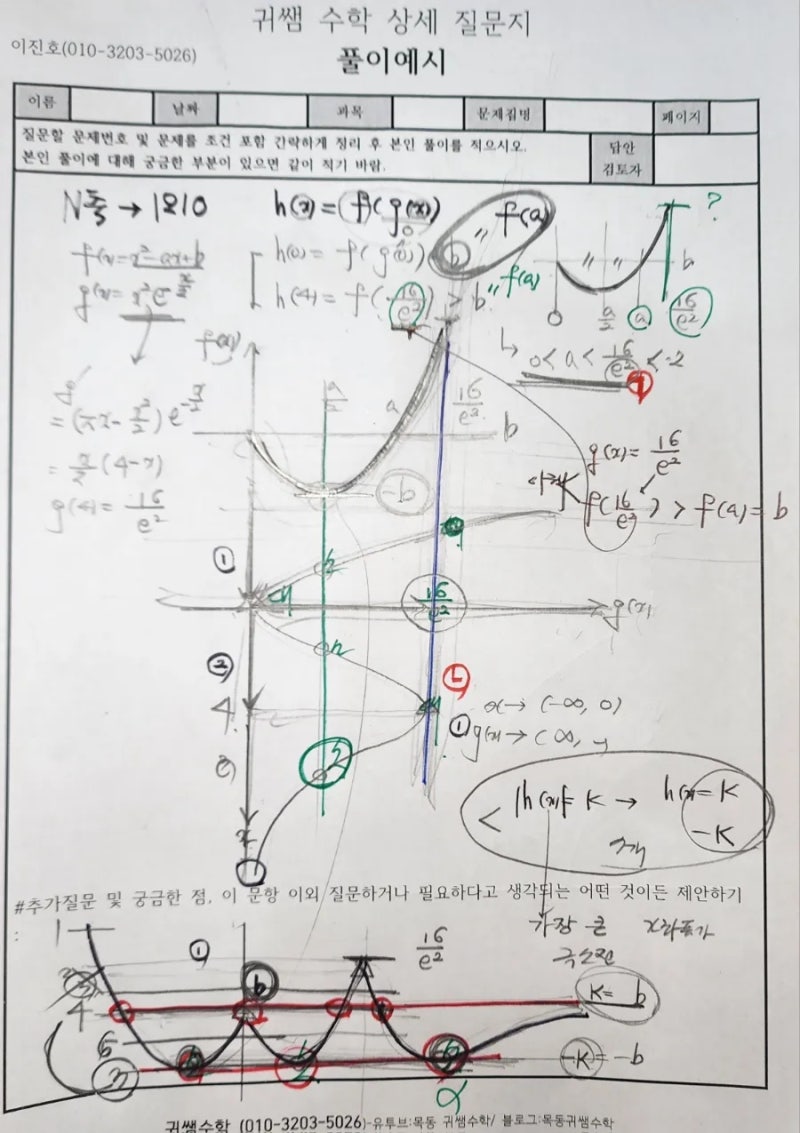 귀쌤 수학 상세 질문지
이진호(010-3203-5026)
풀이예시
이름 날짜 과목 문제집명 페이지
질문할 문제번호 및 문제를 조건 포함 간략하게 정리 후 본인 풀이를 적으시오.
본인 풀이에 대해 궁금한 부분이 있으면 같이 적기 바람.
답안
검토자
→ 1210
h(x) = f(g(x))
f(x)=x²-ax+b
g(x)= x²e^{-x/2}
h(0) = f(g(0))
b
" f(a)
h(4) = f(16/e²) > b
" f(a)
?
b
0 a/2 a 16/e²
0 < a < 16/e² <
f(x)
a/2
a
16/e²
b
-b
g'
= (2x - x²/2) e^{-x/2}
= x/2 (4-x)
g(4) = 16/e²
g(x) = 16/e²
f(16/e²) > f(a) = b
①
16/e²
g(x)
②
4
x → (-∞, 0)
①
|h(x)| = K → h(x) = K
-K
<
x
#추가질문 및 궁금한 점, 이 문항 이외 질문하거나 필요하다고 생각되는 어떤 것이든 제안하기
:
가장 큰 x좌표가
극소점
1
①
b
16/e²
4
K = b
-K = -b
α
귀쌤수학 (010-3203-5026)-유투브:목동 귀쌤수학/ 블로그:목동귀쌤수학